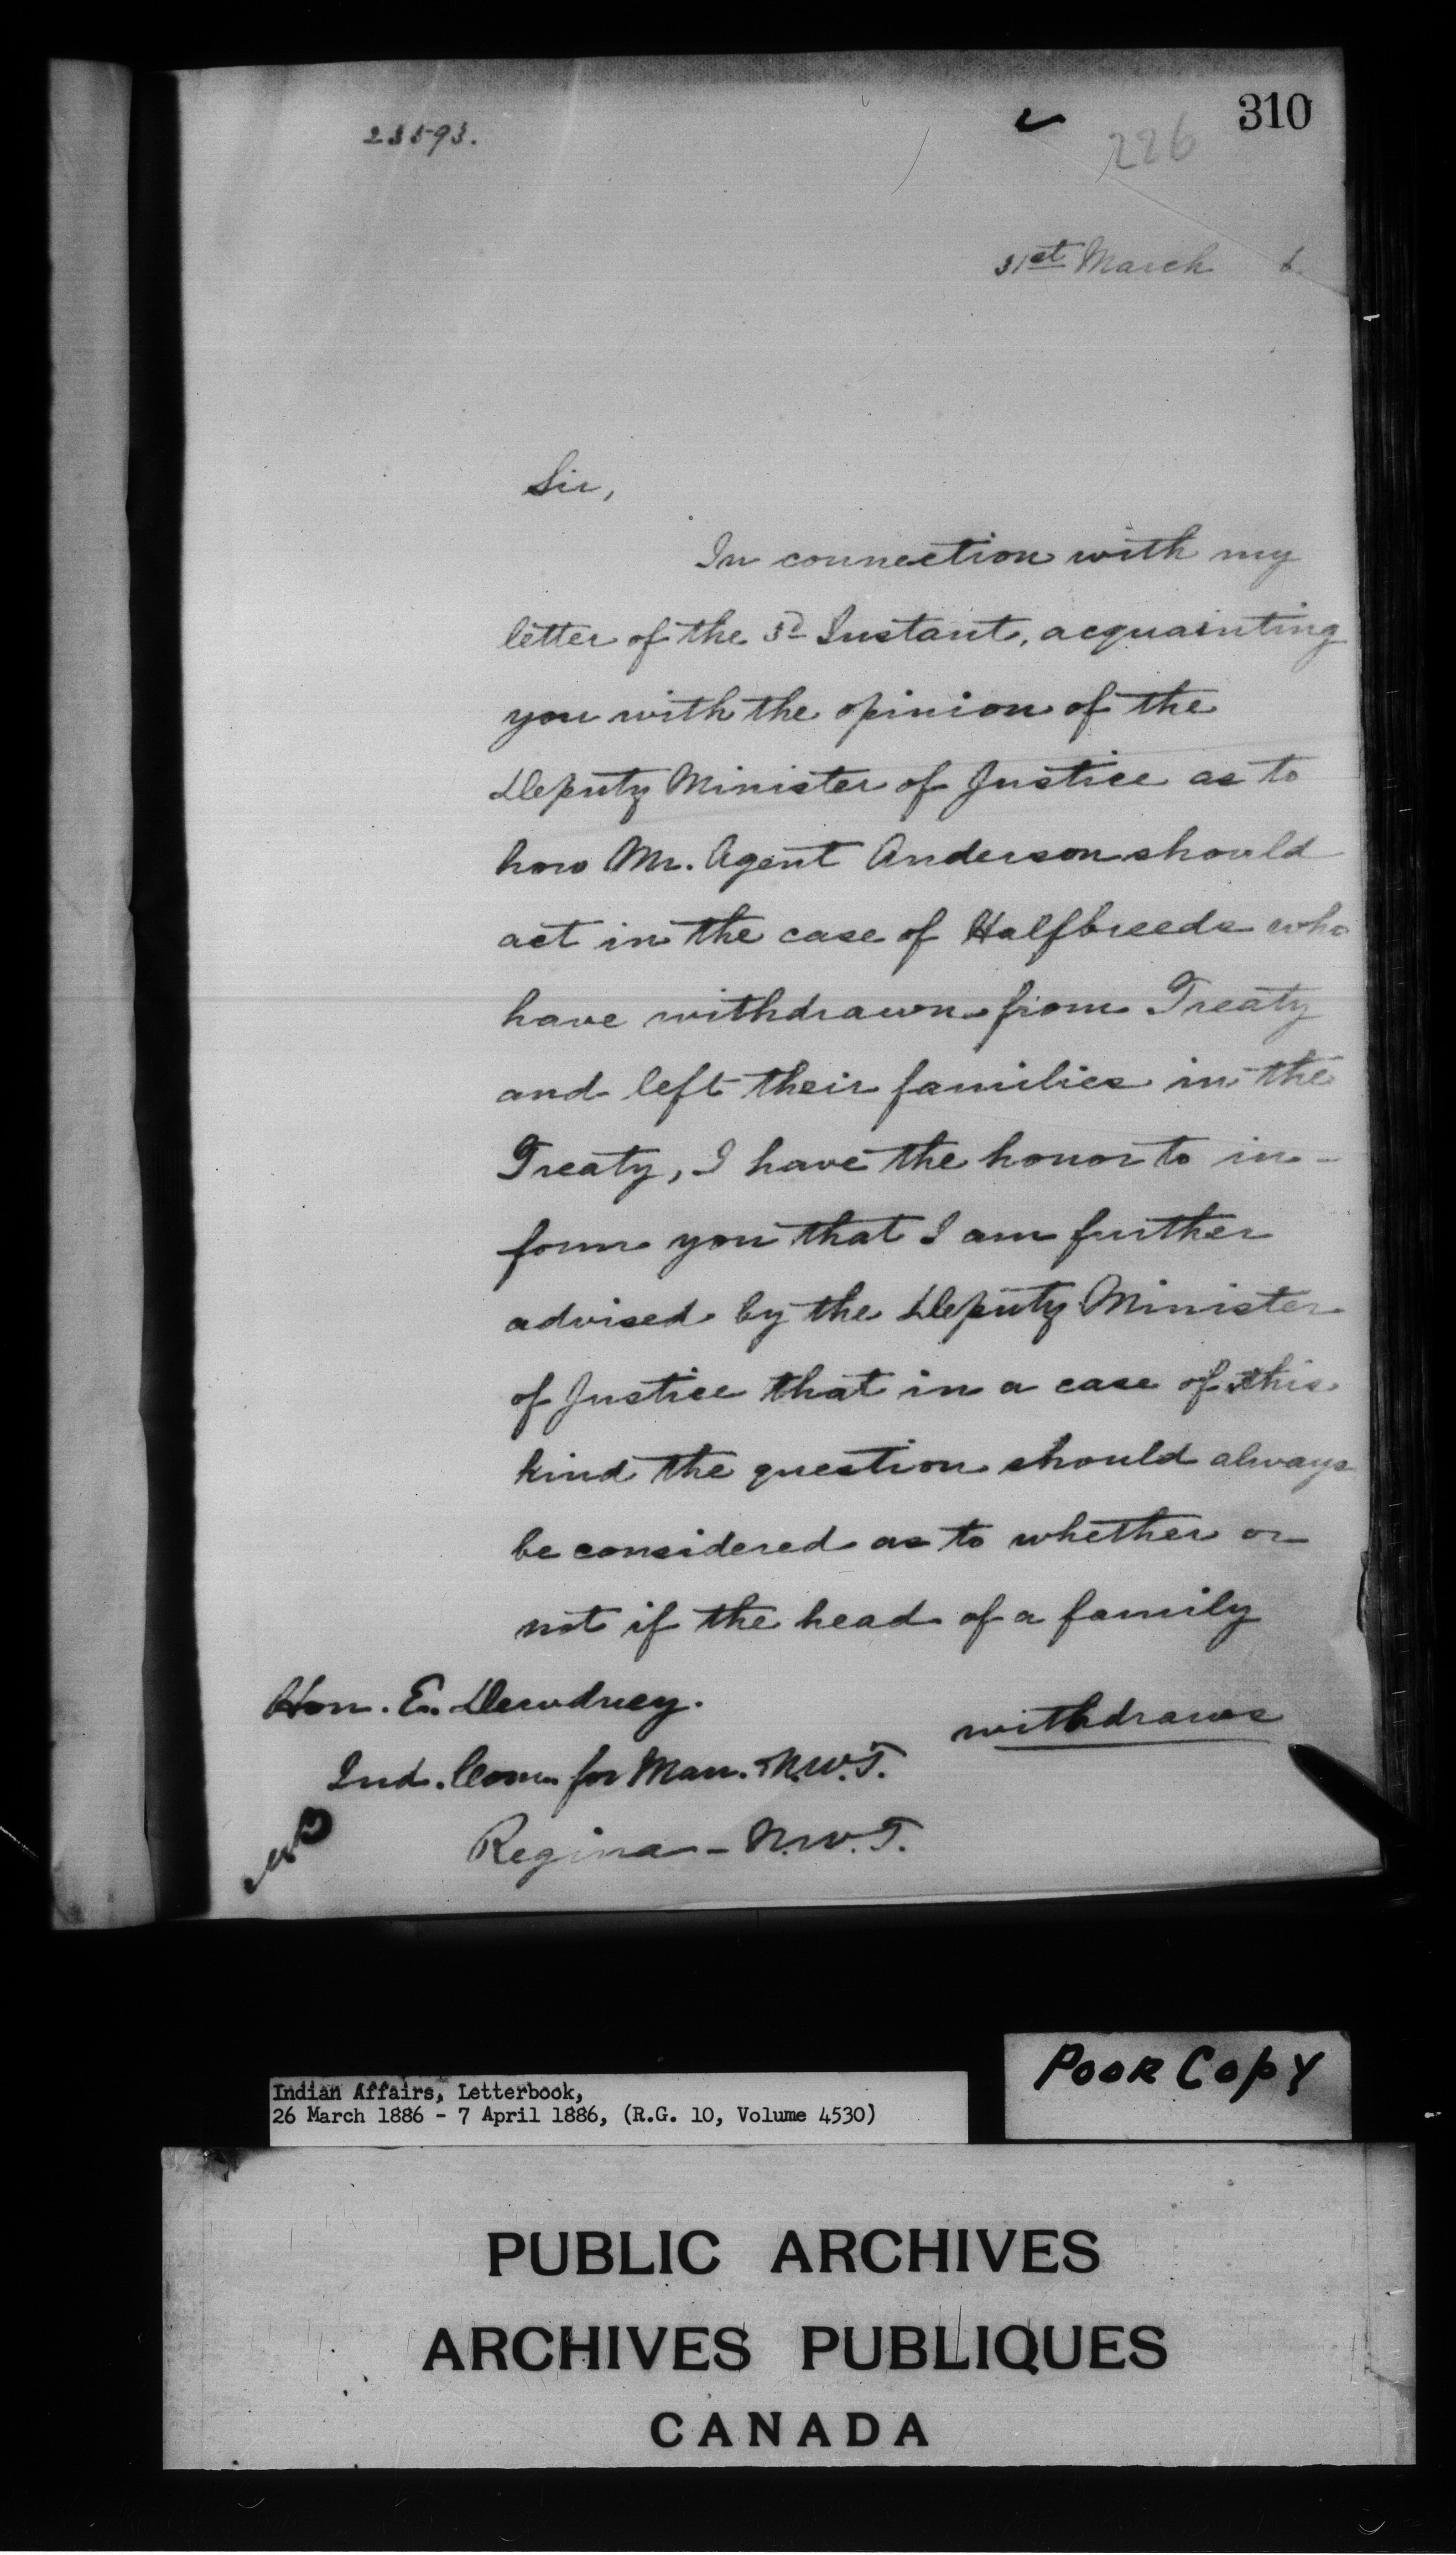 310
226
23593.
31st March 6.
Sir,
In connection with my
letter of the 3d Instant, acquainting
you with the opinion of the
Deputy Minister of Justice as to
how Mr. Agent Anderson should
act in the case of Halfbreeds who
have withdrawn from Treaty
and left their families in the
Treaty, I have the honor to in-
form you that I am further
advised by the Deputy Minister
of Justice that in a case of this
kind the question should always
be considered as to whether or
not if the head of a family
withdraws
Hon. E. Dewdney.
Ind. Com. for Man. N.W.T.
Regina - N.W.T.
POOR COPY
Indian Affairs, Letterbook,
26 March 1886 - 7 April 1886, (R.G. 10, Volume 4530)
PUBLIC ARCHIVES
ARCHIVES PUBLIQUES
CANADA